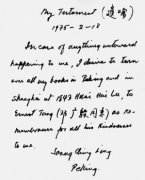 My Testament (遗嘱)
1975-2-18
In case of anything untoward
happening to me, I desire to turn
over all my books in Peking and in
Shanghai at 1843 Huai Hai Lu, to
Ernest Tang (邓广殷同志) as re-
membrance for all his kindness
to me.
Soong Ching Ling
Peking.